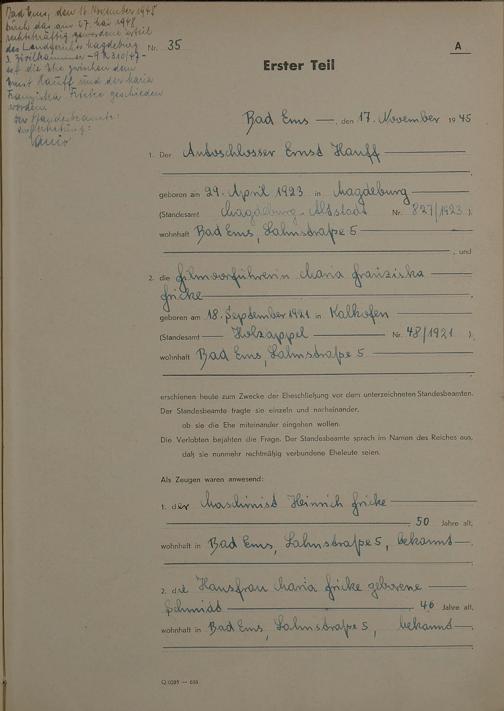 Bad Ems, den 16. November 1948
Durch das am 07. Mai 1948
rechtskräftig gewordene Urteil
des Landgerichts Magdeburg
3. Zivilkammer
ist die Ehe zwischen dem
Ernst Hauff und der Maria
Franziska Fricke geschieden
worden.
Der Standesbeamte:
In Vertretung:
Nr. 35
A
Erster Teil
Bad Ems, den 17. November 1945
1. Der Autoschlosser Ernst Hauff
geboren am 29. April 1923 in Magdeburg
(Standesamt Magdeburg-Altstadt Nr. 827/1923).
wohnhaft Bad Ems, Lahnstraße 5
, und
2. die Filmvorführerin Maria Franziska
Fricke
geboren am 18. September 1921 in Kalkofen
(Standesamt Holzappel Nr. 48/1921).
wohnhaft Bad Ems, Lahnstraße 5
erschienen heute zum Zwecke der Eheschließung vor dem unterzeichneten Standesbeamten.
Der Standesbeamte fragte sie einzeln und nacheinander,
ob sie die Ehe miteinander eingehen wollen.
Die Verlobten bejahten die Frage. Der Standesbeamte sprach im Namen des Reiches aus,
daß sie nunmehr rechtmäßig verbundene Eheleute seien.
Als Zeugen waren anwesend:
1. der Maschinist Heinrich Fricke
50 Jahre alt,
wohnhaft in Bad Ems, Lahnstraße 5, bekannt.
2. die Hausfrau Maria Fricke geborene
Schmidt 46 Jahre alt,
wohnhaft in Bad Ems, Lahnstraße 5, bekannt.